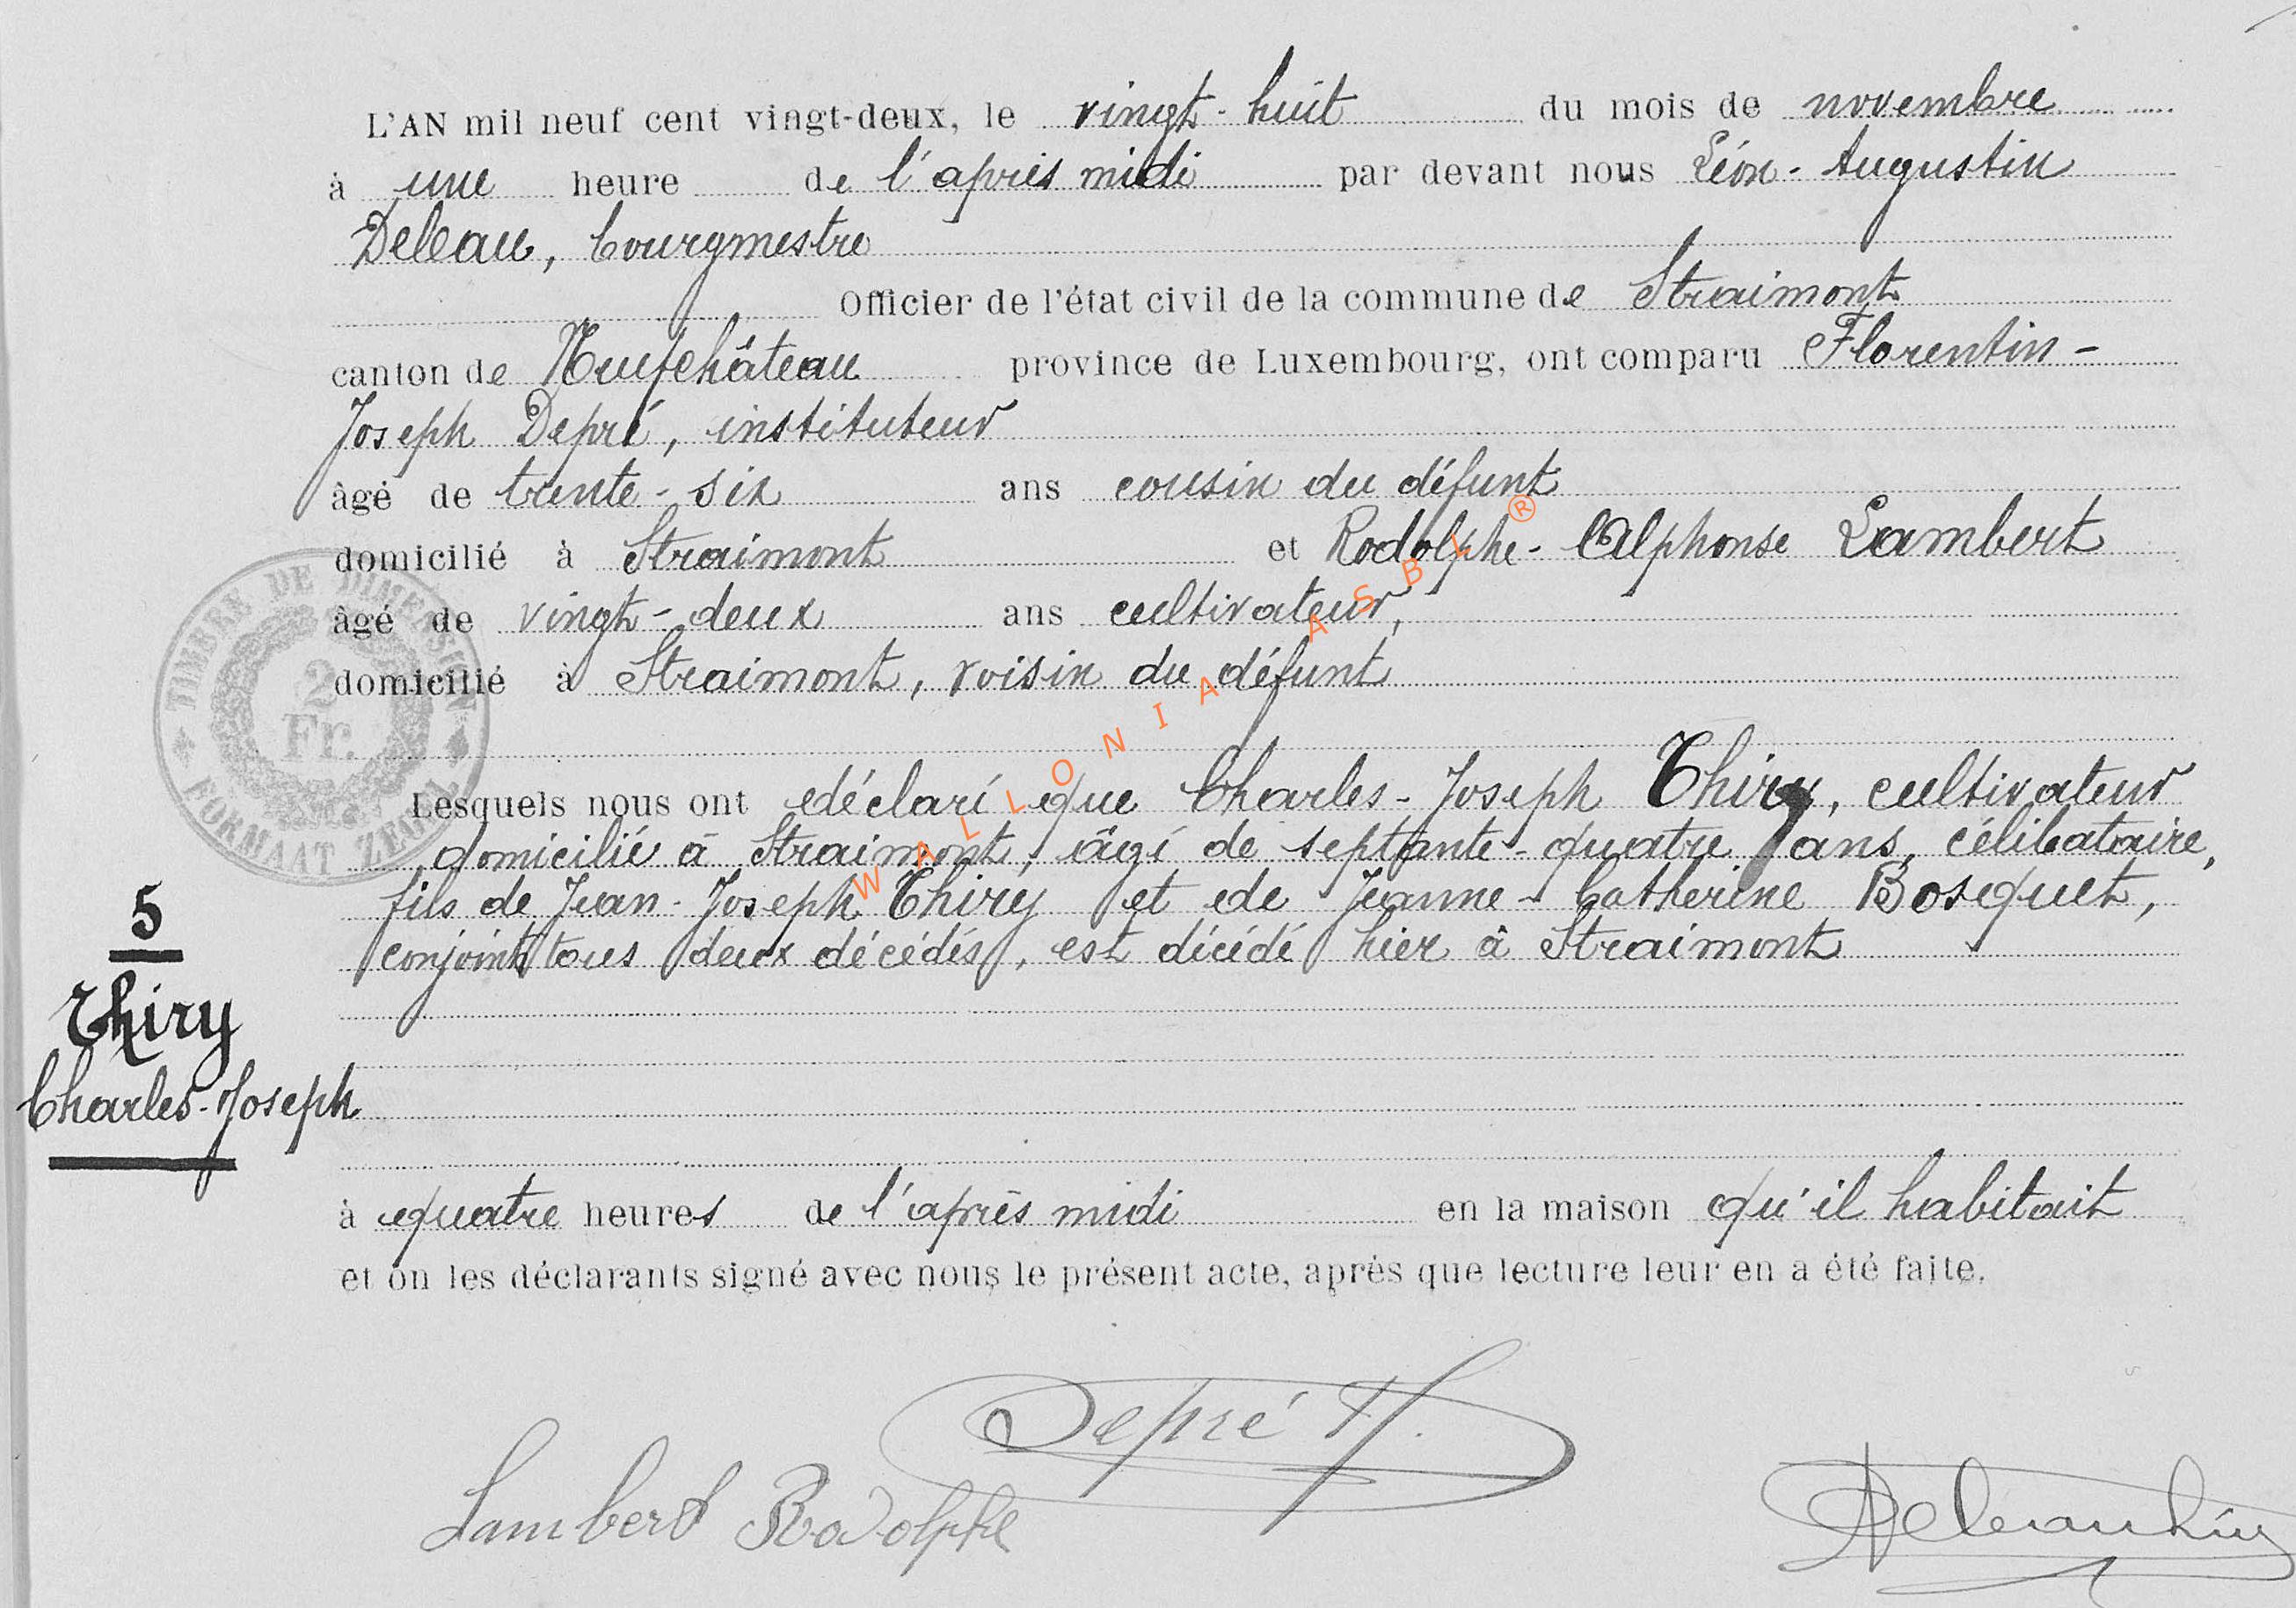 L'AN mil neuf cent vingt-deux, le vingt-huit du mois de novembre
à une heure de l'après midi par devant nous Léon-Augustin
Deleau, bourgmestre
Officier de l'état civil de la commune de Straimont
canton de Neufchâteau province de Luxembourg, ont comparu Florentin-
Joseph Depré, instituteur
âgé de trente-six ans cousin du défunt
domicilié à Straimont et Rodolphe-Alphonse Lambert
âgé de vingt-deux ans cultivateur,
domicilié à Straimont, voisin du défunt
TIMBRE DE DIMENSION
2
Fr.
FORMAAT ZEGEL
WALLONIA ASBL ®
Lesquels nous ont déclaré que Charles-Joseph Thiry, cultivateur
domicilié à Straimont, âgé de septante-quatre ans, célibataire,
fils de Jean-Joseph Thiry et de Jeanne-Catherine Bosquet,
conjoints tous deux décédés, est décédé hier à Straimont
5
Thiry
Charles-Joseph
à quatre heures de l'après midi en la maison qu'il habitait
et on les déclarants signé avec nous le présent acte, après que lecture leur en a été faite.
Depré F.
Lambert Rodolphe